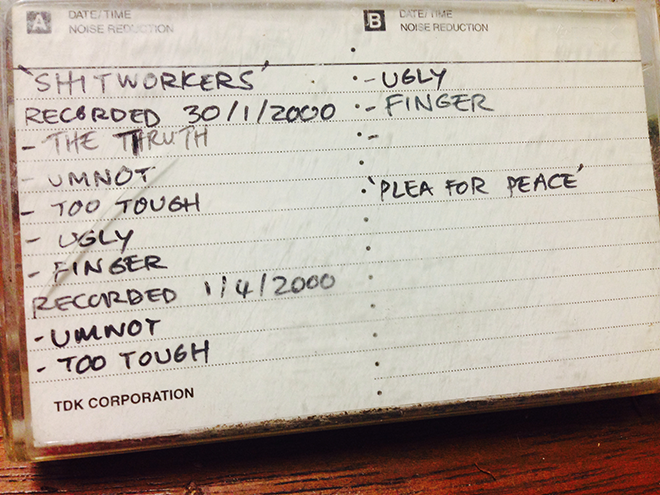 A DATE/TIME
NOISE REDUCTION
'SHITWORKERS'
RECORDED 30/1/2000
- THE THRUTH
- UMNOT
- TOO TOUGH
- UGLY
- FINGER
RECORDED 1/4/2000
- UMNOT
- TOO TOUGH
TDK CORPORATION
B DATE/TIME
NOISE REDUCTION
- UGLY
- FINGER
-
'PLEA FOR PEACE'